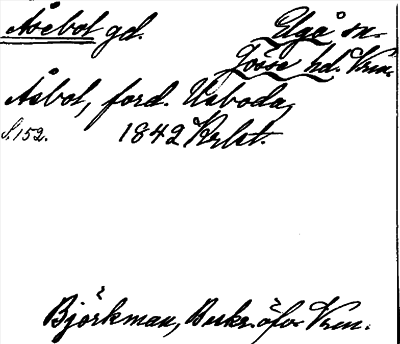 Åsebol gd. Elgå sn.
Jösse hd. Vrm.
Åsbol, ford. Usboda,
S. 152. 1842 Krlst.
Björkman, Beskr. öfver Vrm.